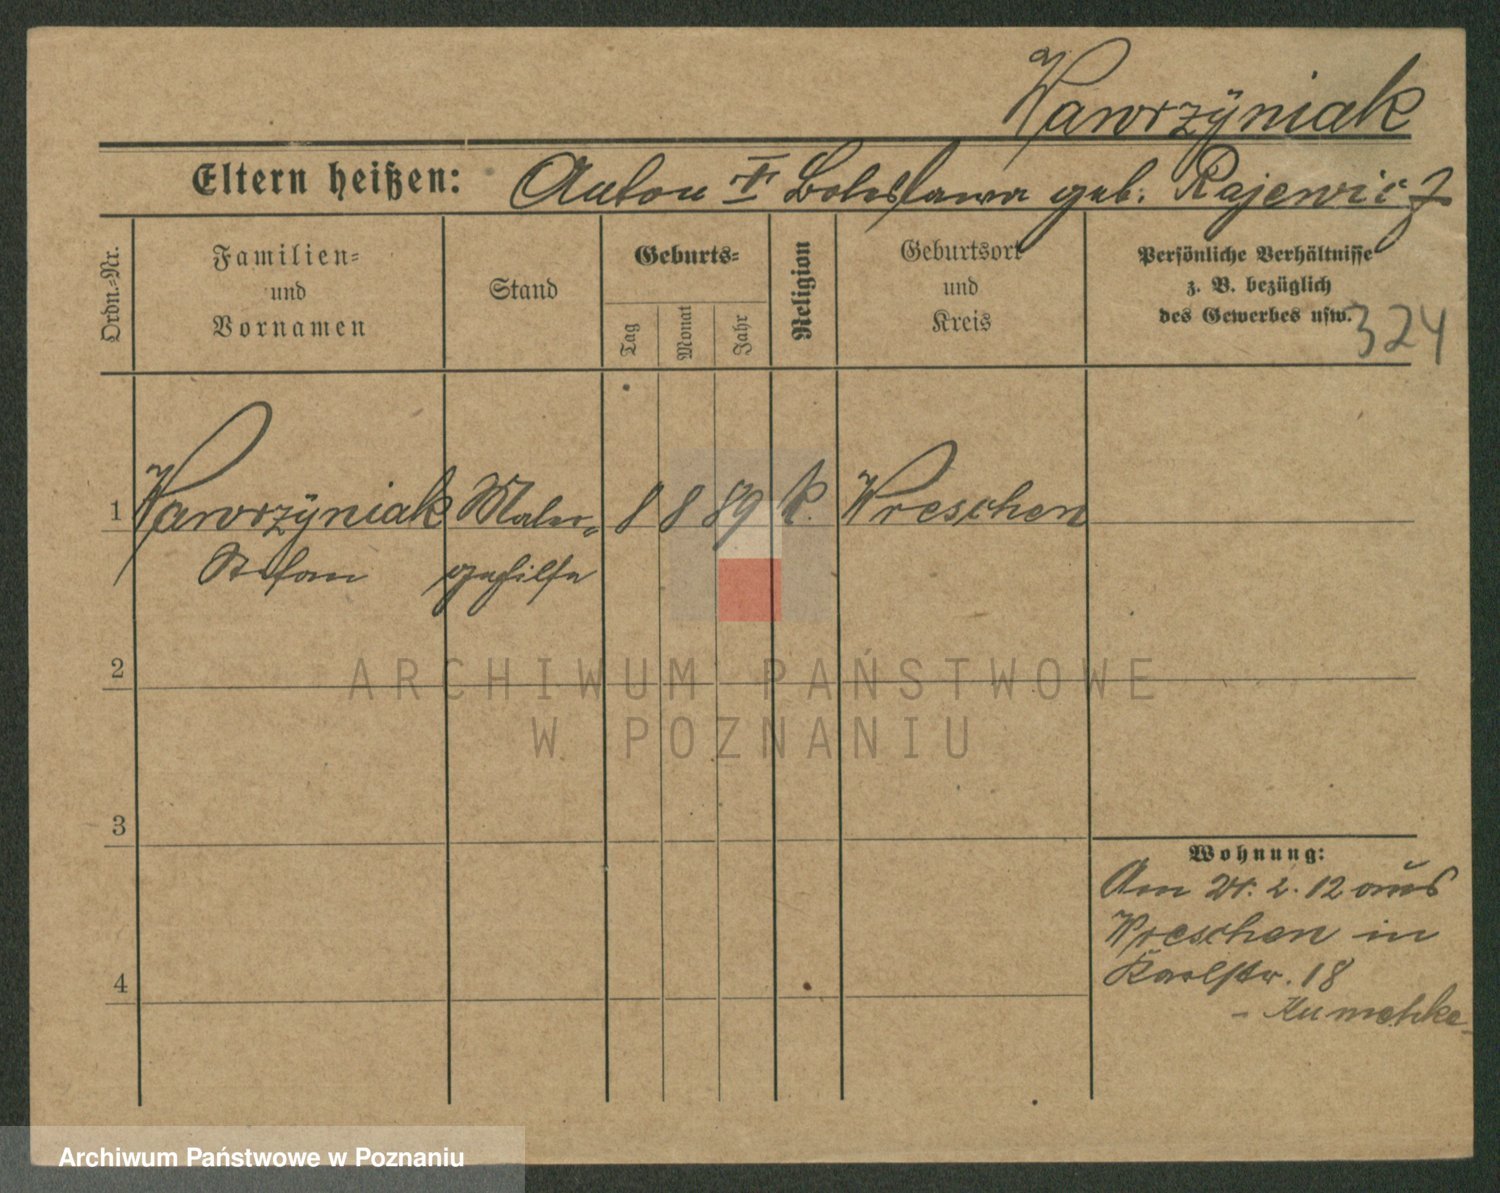 Wawrzÿniak
Eltern heißen: Anton † Boleslawa geb. Rajewicz
Ordn.-Nr.
Familien-
und
Vornamen
Stand
Geburts-
Tag
Monat
Jahr
Religion
Geburtsort
und
Kreis
Persönliche Verhältnisse
z. B. bezüglich
des Gewerbes usw.
324
1 Wawrzÿniak Maler- 8 8 89 k. Wreschen
Stefan gehilfe
2
3
4
Wohnung:
Am 24. 2. 12 aus
Wreschen in
Karlstr. 18
ARCHIWUM PAŃSTWOWE
W POZNANIU
Archiwum Państwowe w Poznaniu